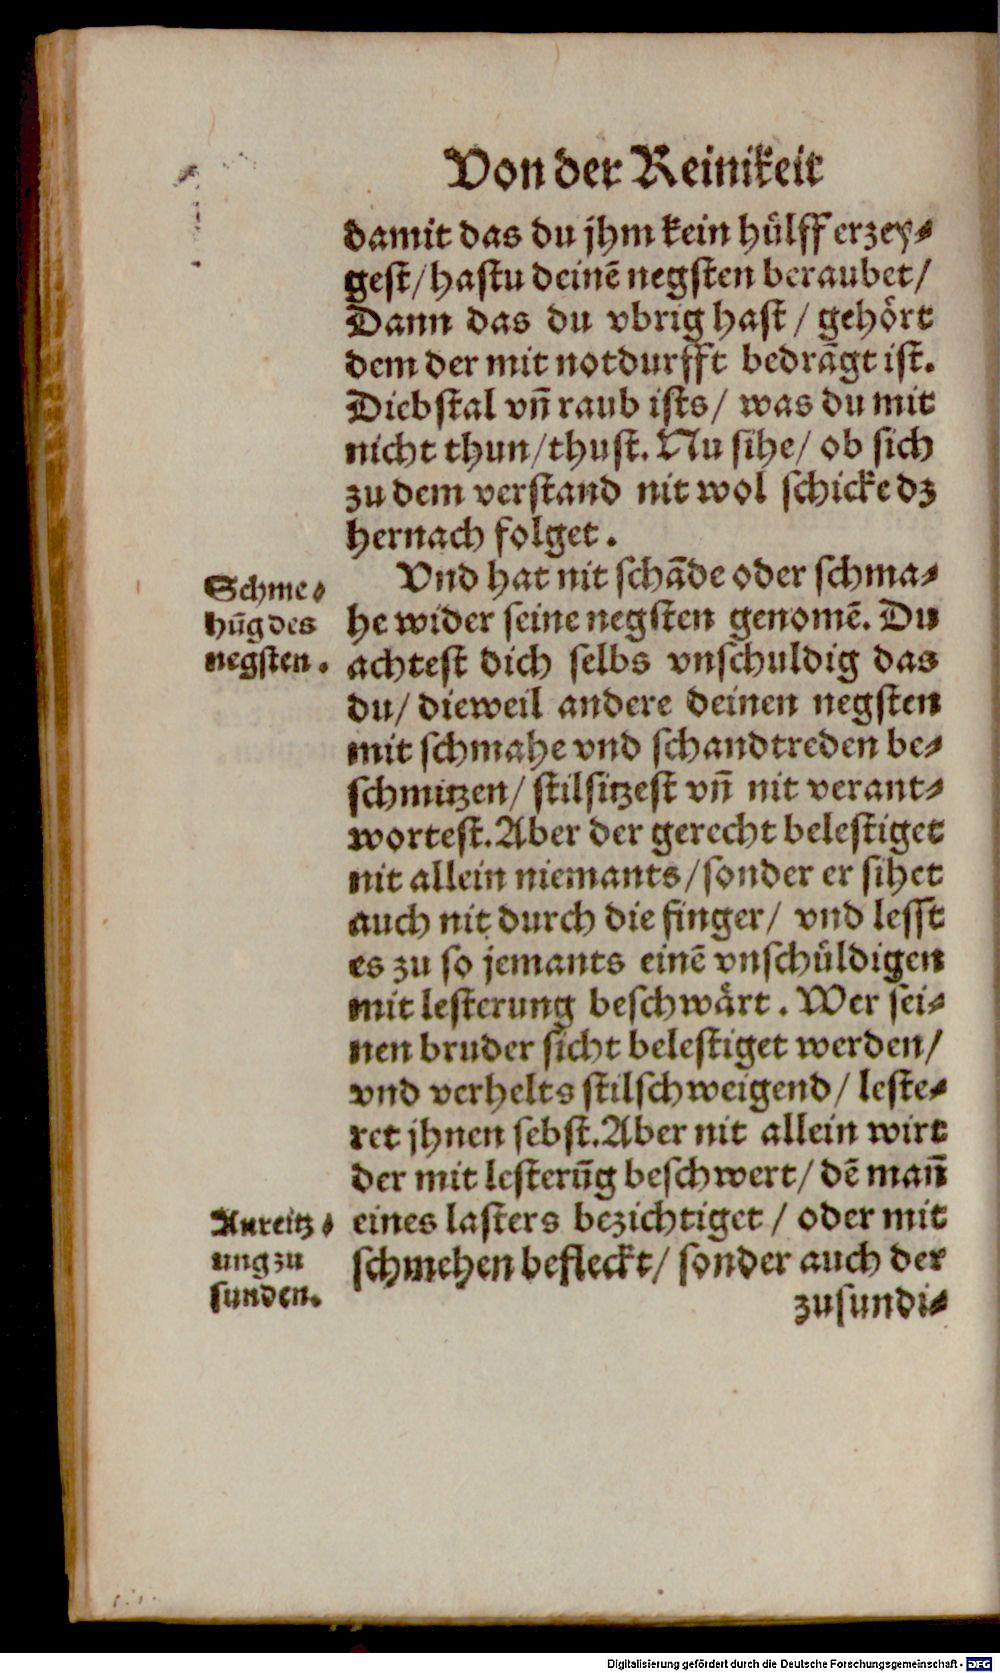 Von der Reinikeit
damit das du jhm kein hülff erzey-
gest/hastu deinē negsten beraubet/
Dann das du vbrig hast / gehört
dem der mit notdurfft bedrāgt ist.
Diebstal vn̄ raub ists/ was du mit
nicht thun/thust. Nu sihe/ ob sich
zu dem verstand nit wol schicke dz
hernach folget.
Vnd hat nit schāde oder schma-
he wider seine negsten genomē. Du
achtest dich selbs vnschuldig das
du/ dieweil andere deinen negsten
mit schmahe vnd schandtreden be-
schmitzen/ stilsitzest vn̄ nit verant-
wortest. Aber der gerecht belestiget
nit allein niemants/sonder er sihet
auch nit durch die finger/ vnd lesst
es zu so jemants einē vnschüldigen
mit lesterung beschwärt. Wer sei-
nen bruder sicht belestiget werden/
vnd verhelts stilschweigend/ leste-
ret jhnen sebst. Aber nit allein wirt
der mit lesterūg beschwert/ dē man̄
eines lasters bezichtiget / oder mit
schmehen befleckt/ sonder auch der
zusundi-
Schme-
hūg des
negsten.
Anreitz-
ung zu
sunden.
Digitalisierung gefördert durch die Deutsche Forschungsgemeinschaft - DFG